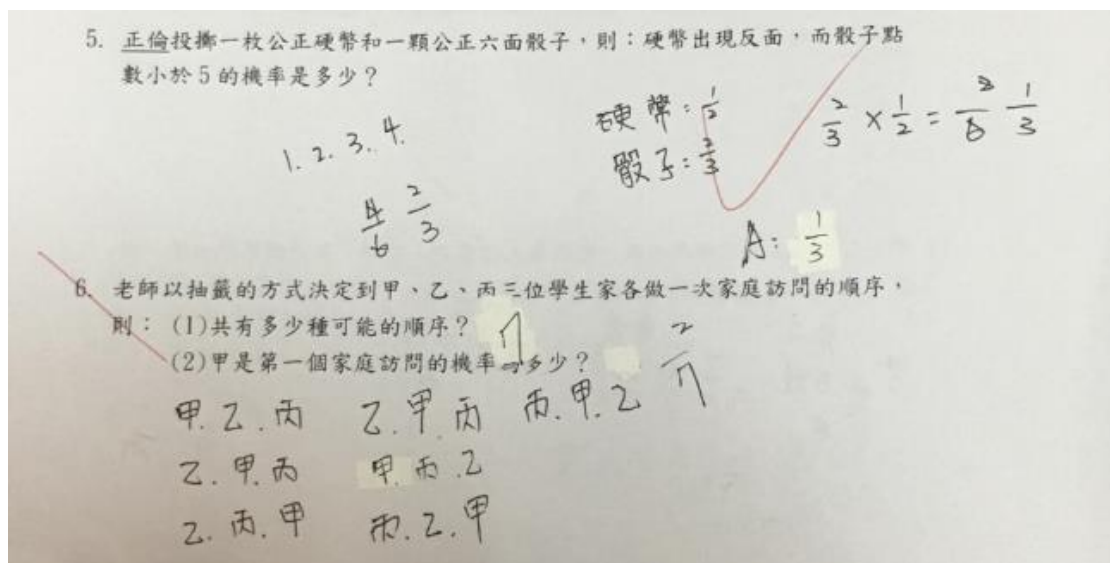 5. 正倫投擲一枚公正硬幣和一顆公正六面骰子,則:硬幣出現反面,而骰子點
數小於5的機率是多少?
1. 2. 3. 4.
4/6 2/3
硬幣: 1/2
骰子: 2/3
2/3 × 1/2 = 2/6 1/3
A: 1/3
6. 老師以抽籤的方式決定到甲、乙、丙三位學生家各做一次家庭訪問的順序,
則:(1)共有多少種可能的順序? 7
(2)甲是第一個家庭訪問的機率 多少? 2/7
甲.乙.丙 乙.甲.丙 丙.甲.乙
乙.甲.丙 甲.丙.乙
乙.丙.甲 丙.乙.甲